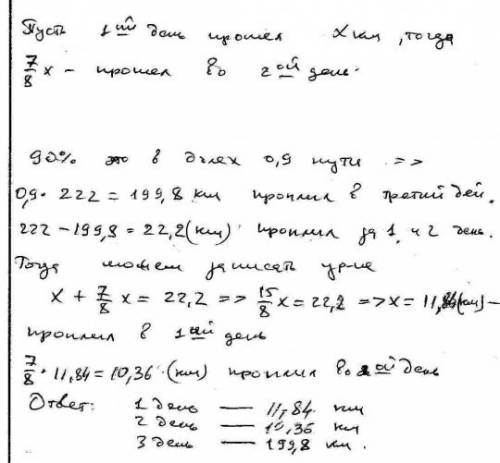 Пусть 1ый день прошел x км, тогда
7/8 x – прошел во 2ой день.
90% это в долях 0,9 пути =>
0,9 · 222 = 199,8 км проплыл в третий дей.
222 – 199,8 = 22,2 (км) проплыл за 1 и 2 день.
Тогда можем записать урие
x + 7/8 x = 22,2 => 15/8 x = 22,2 => x = 11,84 (км) –
проплыл в 1ый день
7/8 · 11,84 = 10,36 (км) проплыл во 2ой день
Ответ: 1 день — 11,84 км
2 день — 10,36 км
3 день — 199,8 км.